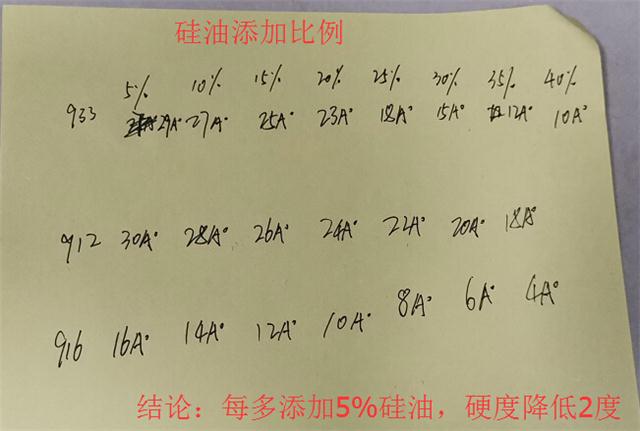 硅油添加比例
5% 10% 15% 20% 25% 30% 35% 40%
933 29A° 27A° 25A° 23A° 18A° 15A° 12A° 10A°
912 30A° 28A° 26A° 24A° 22A° 20A° 18A°
916 16A° 14A° 12A° 10A° 8A° 6A° 4A°
结论：每多添加5%硅油，硬度降低2度